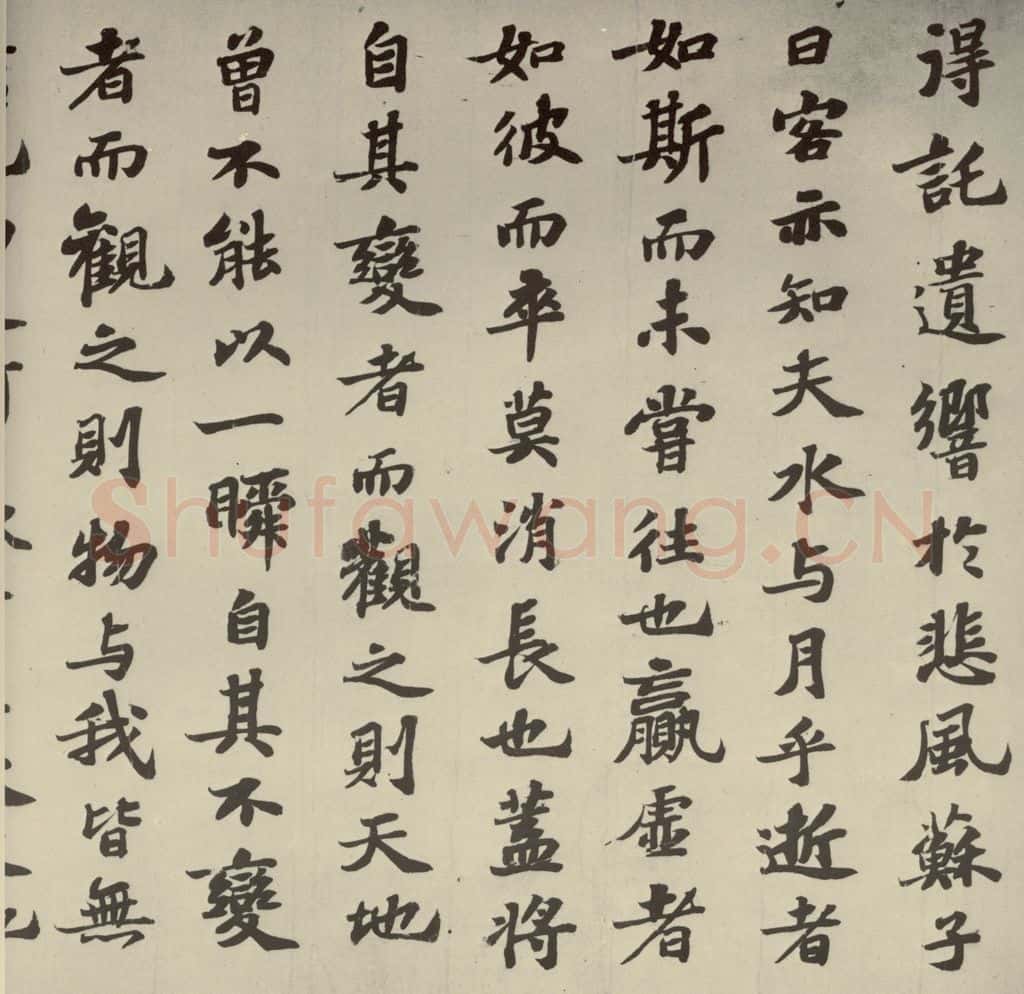 得託遺響於悲風蘇子
曰客亦知夫水与月乎逝者
如斯而未嘗往也贏虛者
如彼而卒莫消長也蓋将
自其變者而觀之則天地
曾不能以一瞬自其不變
者而觀之則物与我皆無
Shufawang.CN